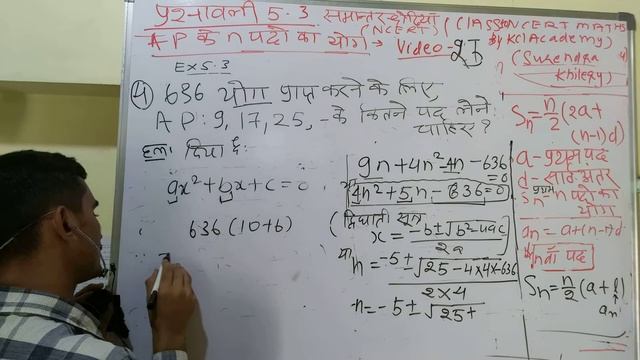 प्रश्नावली 5.3 समान्तर श्रेढ़ियाँ (CLASS 10 NCERT MATHS
A P के n पदों का योग → (NCERT) Video-25 By KCI Academy)
(Surendra Khilery)
EX 5.3
④ 636 योग प्राप्त करने के लिए
A P: 9, 17, 25, - के कितने पद लेने चाहिए?
हल: दिया है:
9x²+bx+c=0
636 (10+6)
9n+4n²-4n-636=0
4n²+5n-636=0
(द्विघाती सूत्र
x = -b±√b²-4ac / 2a
या n = -5±√25-4×4×-636 / 2×4
n = -5±√25+
Sₙ = n/2 (2a+(n-1)d)
a - प्रथम पद
d - सार्व अंतर
Sₙ = प्रथम n पदों का योग
aₙ = a+(n-1)d
n वाँ पद
Sₙ = n/2 (a+l)
aₙ